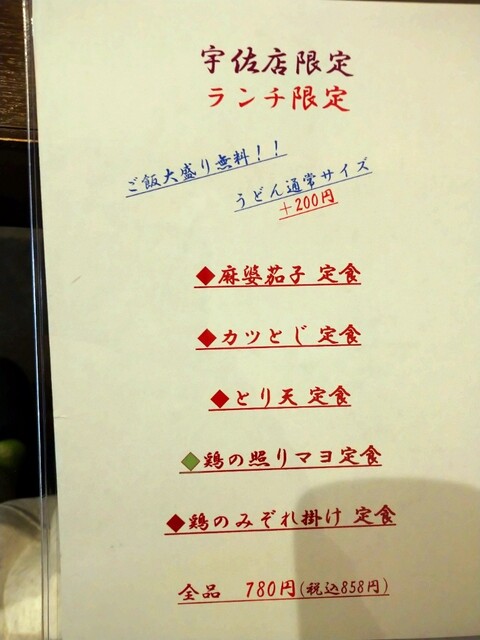 宇佐店限定
ランチ限定
ご飯大盛り無料!!
うどん通常サイズ
+200円
◆麻婆茄子 定食
◆カツとじ 定食
◆とり天 定食
◆鶏の照りマヨ定食
◆鶏のみぞれ掛け 定食
全品 780円(税込858円)